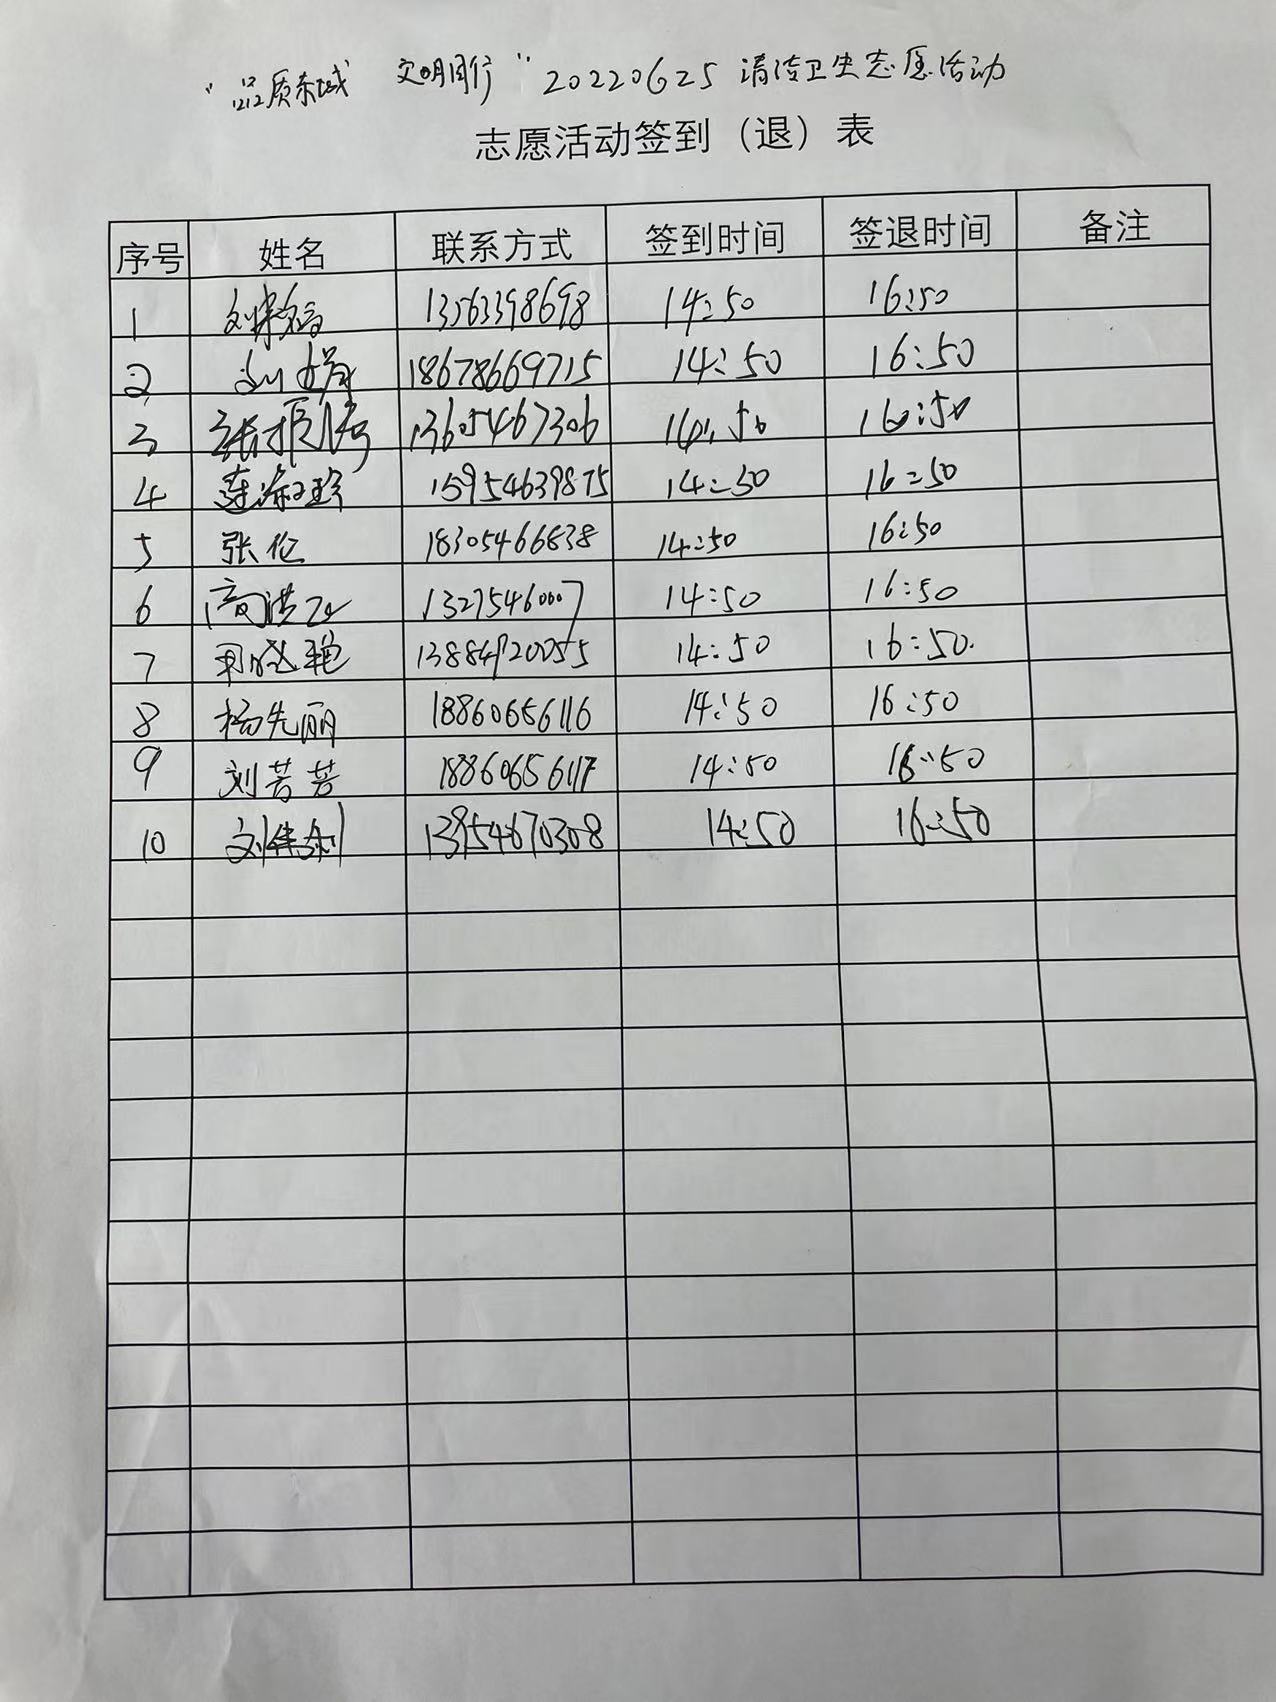 “品质东城 文明同行”20220625 清洁卫生志愿活动
志愿活动签到（退）表
序号 姓名 联系方式 签到时间 签退时间 备注
1 13563398698 14:50 16:50
2 18678669715 14:50 16:50
3 13605467306 14:50 16:50
4 15954639875 14:50 16:50
5 张伦 18305466838 14:50 16:50
6 13275460007 14:50 16:50
7 13884920055 14:50 16:50.
8 杨先丽 18860656116 14:50 16:50
9 刘芳芳 18860656117 14:50 16:50
10 13954670308 14:50 16:50